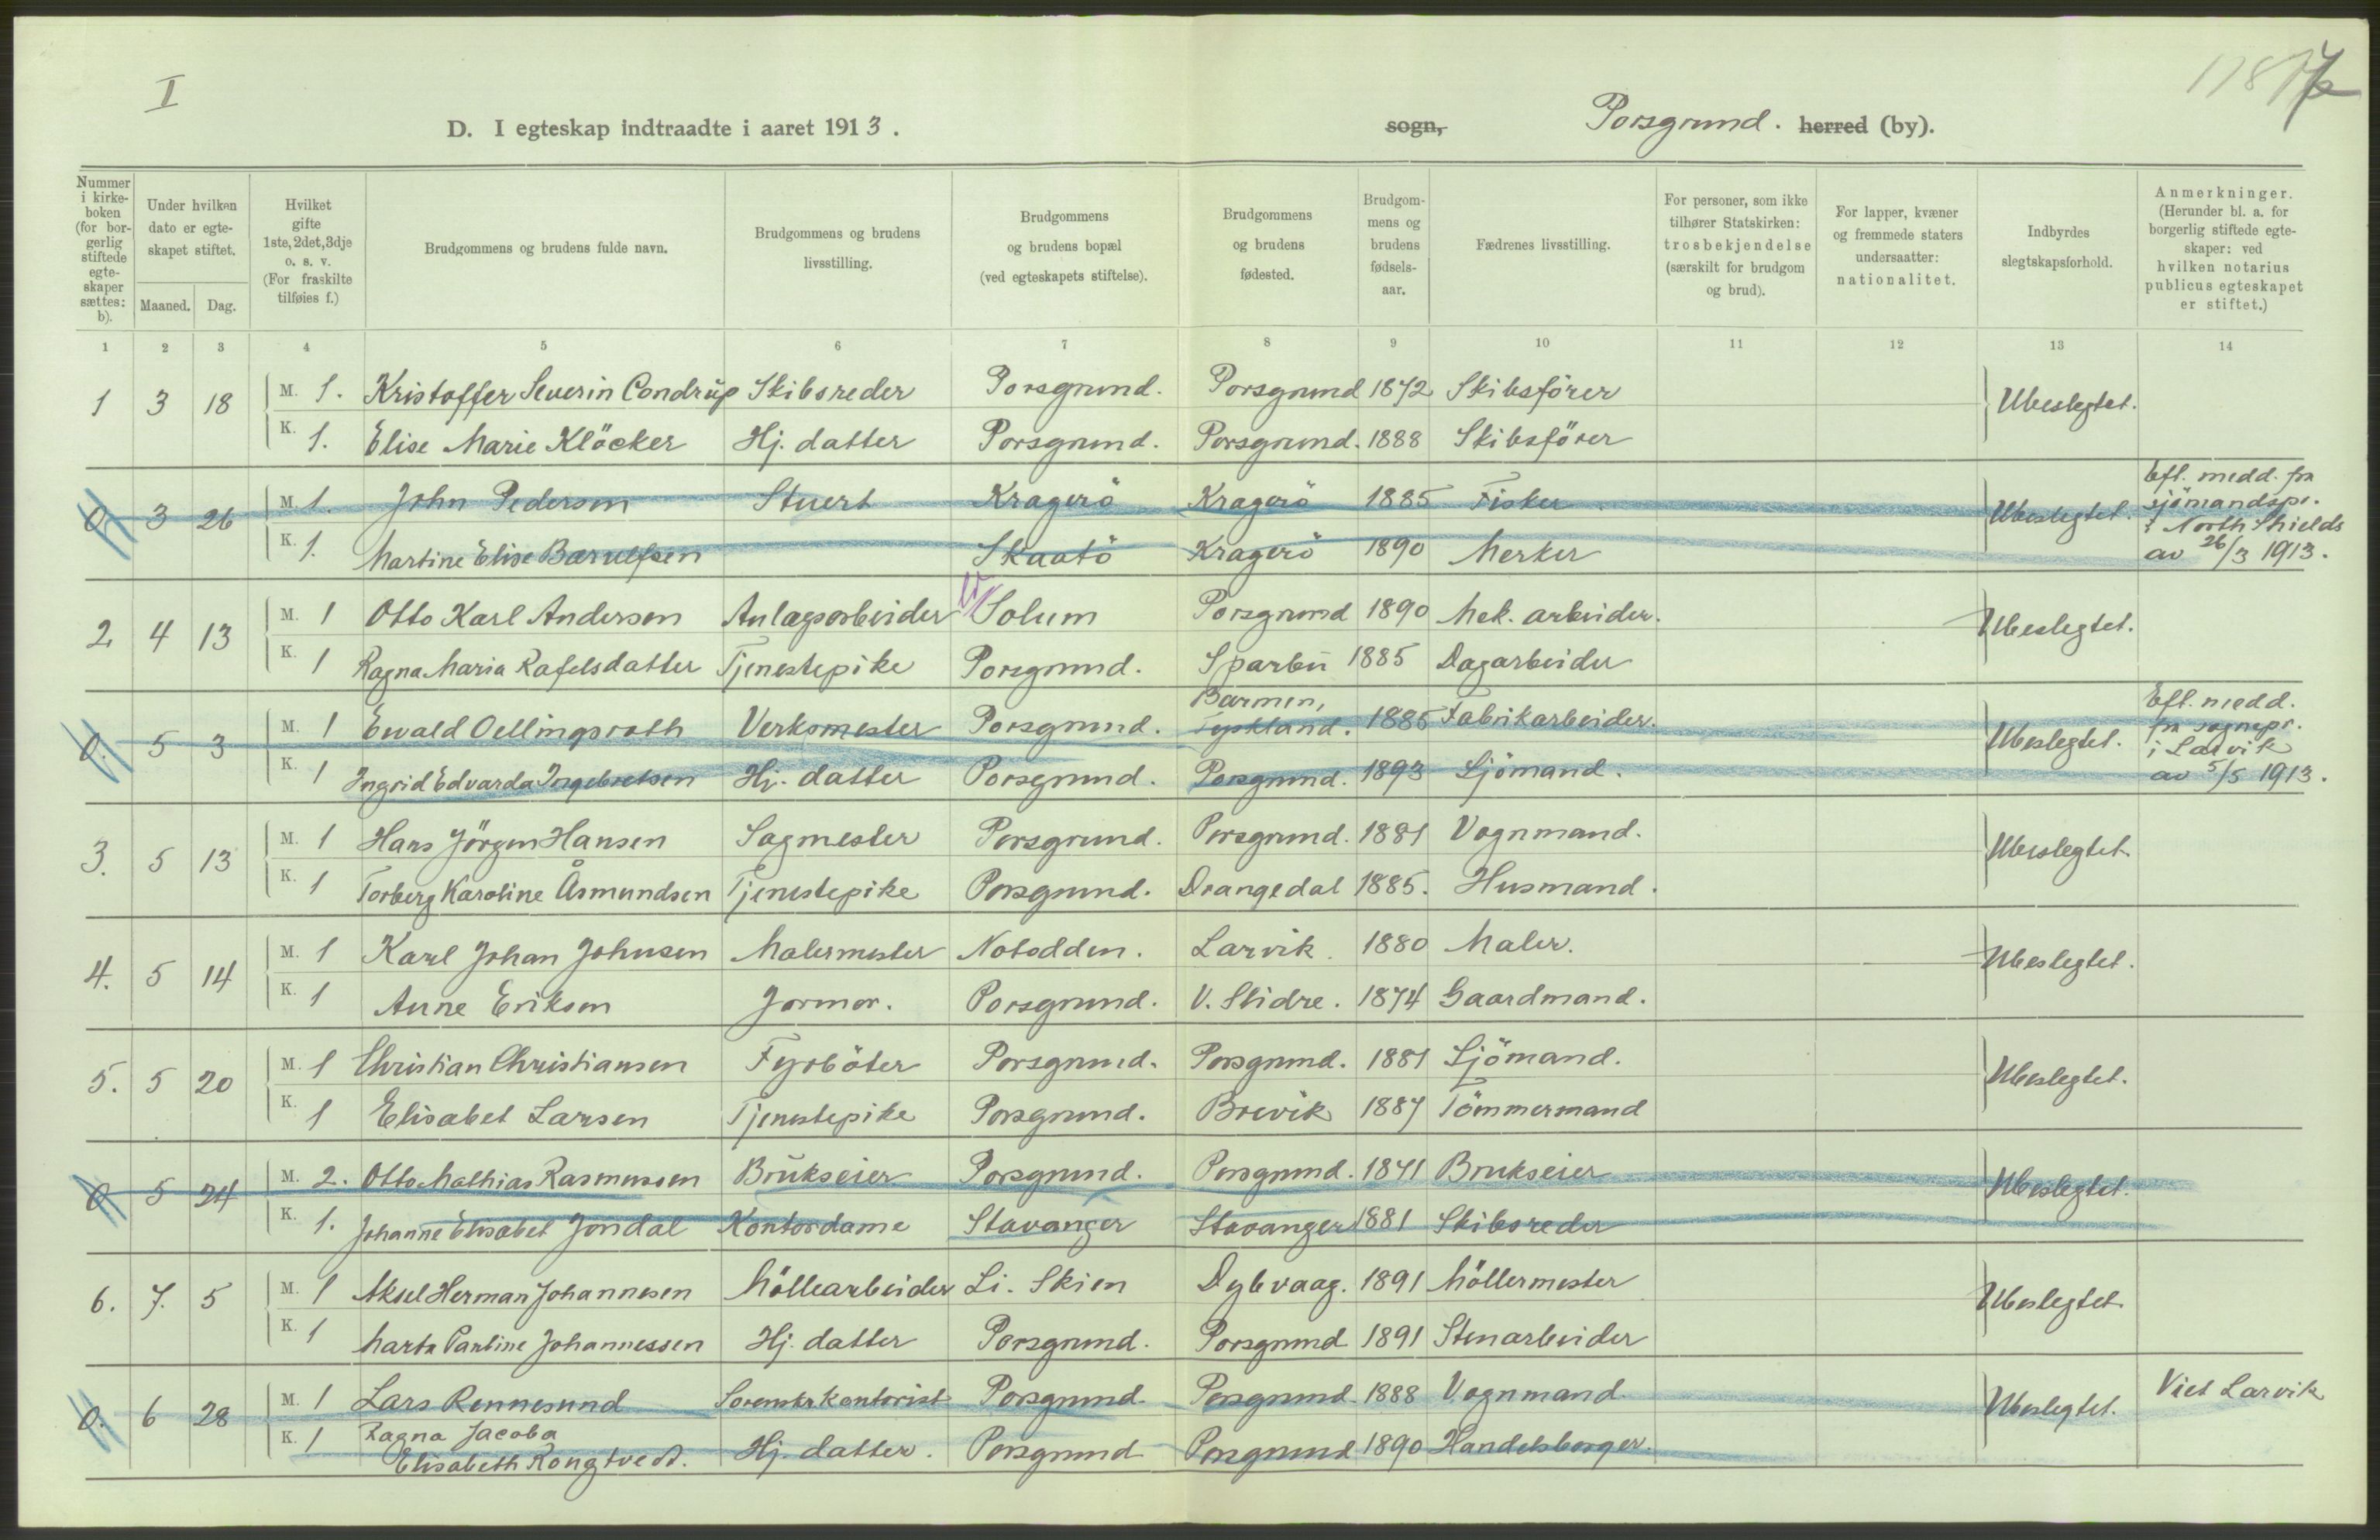 I
1181
D. I egteskap indtraadte i aaret 1913.
sogn, Porsgrund. herred (by).
Nummer i kirkeboken (for borgerlig stiftede egteskaper sættes: b).
Under hvilken dato er egteskapet stiftet.
Maaned. Dag.
Hvilket gifte 1ste, 2det, 3dje o. s. v. (For fraskilte tilføies f.)
Brudgommens og brudens fulde navn.
Brudgommens og brudens livsstilling.
Brudgommens og brudens bopæl (ved egteskapets stiftelse).
Brudgommens og brudens fødested.
Brudgommens og brudens fødselsaar.
Fædrenes livsstilling.
For personer, som ikke tilhører Statskirken: trosbekjendelse (særskilt for brudgom og brud).
For lapper, kvæner og fremmede staters undersaatter: nationalitet.
Indbyrdes slegtskapsforhold.
Anmerkninger. (Herunder bl. a. for borgerlig stiftede egteskaper: ved hvilken notarius publicus egteskapet er stiftet.)
1 2 3 4 5 6 7 8 9 10 11 12 13 14
1 3 18 M. 1. Kristoffer Severin Condrup Skibsreder Porsgrund. Porsgrund 1872 Skibsförer Ubeslegtet.
K. 1. Elise Marie Klöcker Hj. datter Porsgrund. Porsgrund. 1888 Skibsförer
0. 3 26 M. 1. John Pedersen Stuert Kragerö Kragerö 1885 Fisker Ubeslegtet. Eft. medd. fra sjömandspr. i North Shields av 26/3 1913.
K. 1. Martine Elise Barulfsen Skaatö Kragerö 1890 Merker
2 4 13 M. 1 Otto Karl Andersen Anlægsarbeider Solum Porsgrund 1890 Mek. arbeider. Ubeslegtet.
K. 1 Ragna Maria Rafelsdatter Tjenestepike Porsgrund. Sparbu 1885 Dagarbeider
0. 5 3 M. 1 Ewald Oellingsrath Verksmester Porsgrund. Barmen, Tyskland. 1885 Fabrikarbeider. Ubeslegtet. Eft. medd. fra sognepr. i Larvik av 5/5 1913.
K. 1 Ingrid Edvarda Ingebretsen Hj. datter Porsgrund. Porsgrund. 1893 Sjömand.
3. 5 13 M. 1 Hans Jörgen Hansen Sagmester Porsgrund. Porsgrund. 1881 Vognmand. Ubeslegtet.
K. 1 Torberg Karoline Åsmundsen Tjenestepike Porsgrund. Drangedal 1885. Husmand.
4. 5 14 M. 1 Karl Johan Johnsen Malermester Notodden. Larvik. 1880 Maler. Ubeslegtet.
K. 1 Anne Eriksen Jormor. Porsgrund. V. Slidre. 1874 Gaardmand.
5. 5 20 M. 1 Christian Christiansen Fyrböter Porsgrund. Porsgrund. 1881 Sjömand. Ubeslegtet.
K. 1 Elisabet Larsen Tjenestepike Porsgrund. Brevik 1887 Tömmermand
0. 5 24 M. 2. Otto Mathias Rasmussen Brukseier Porsgrund. Porsgrund. 1841 Brukseier Ubeslegtet.
K. 1. Johanne Elisabet Jondal Kontordame Stavanger Stavanger 1881 Skibsreder
6. 7. 5 M. 1 Aksel Herman Johannesen Möllearbeider Li. Skien Dybvaag. 1891 Möllermester Ubeslegtet.
K. 1 Marta Pauline Johannessen Hj. datter Porsgrund. Porsgrund 1891 Stenarbeider
0. 6 28 M. 1 Lars Rennesund Sorenskr kontorist Porsgrund. Porsgrund. 1888 Vognmand Ubeslegtet. Viet Larvik
K. 1 Ragna Jacoba Elisabeth Rongtvedt. Hj. datter. Porsgrund Porsgrund 1890 Handelsborger.